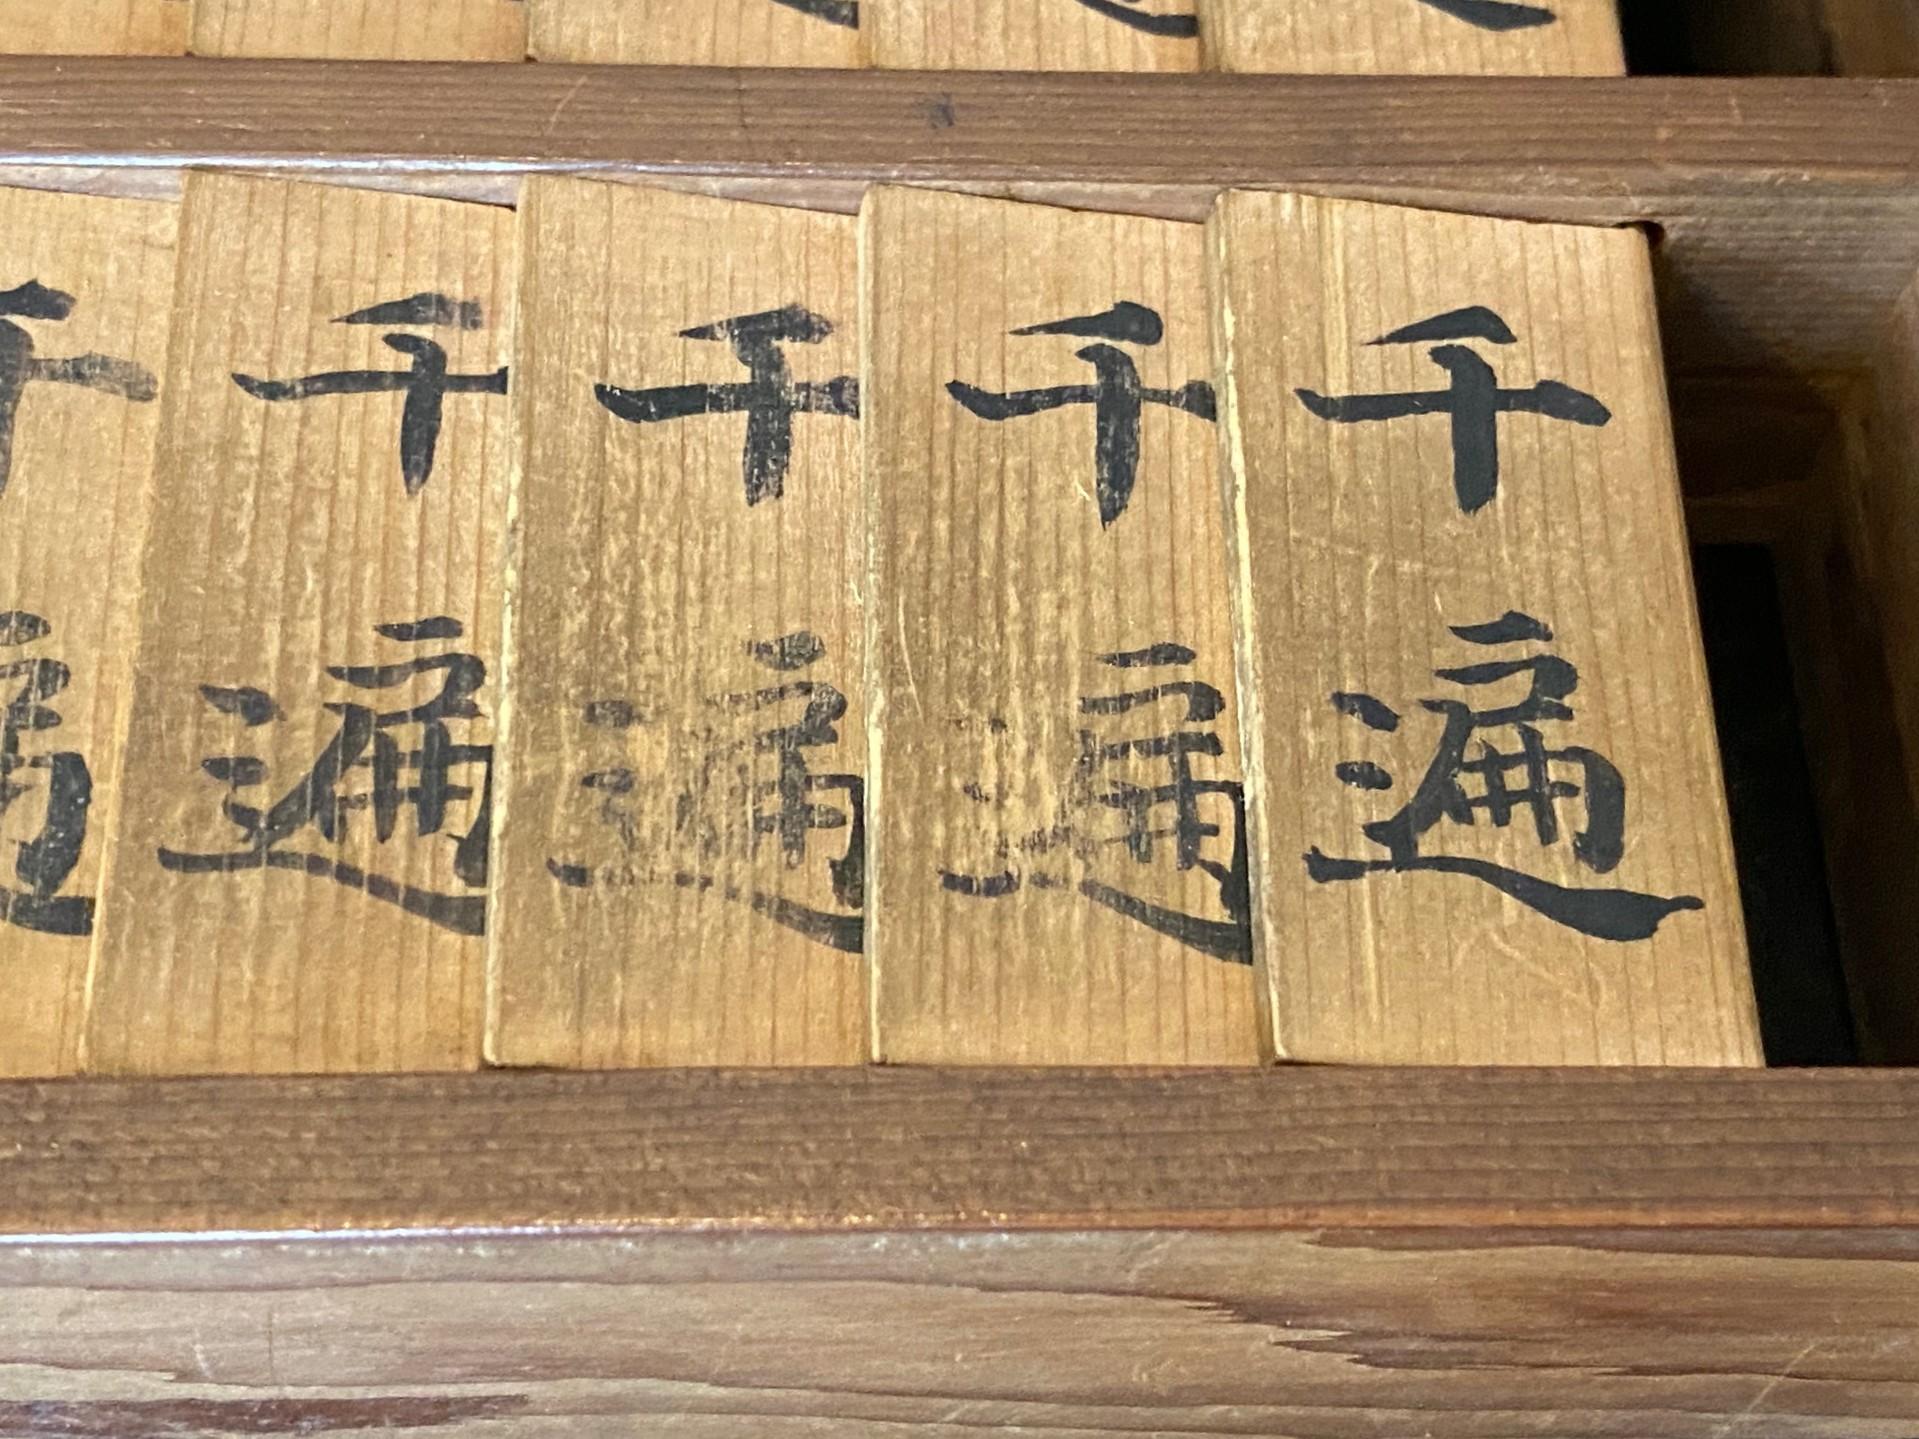 千遍
千遍
千遍
千遍
千遍